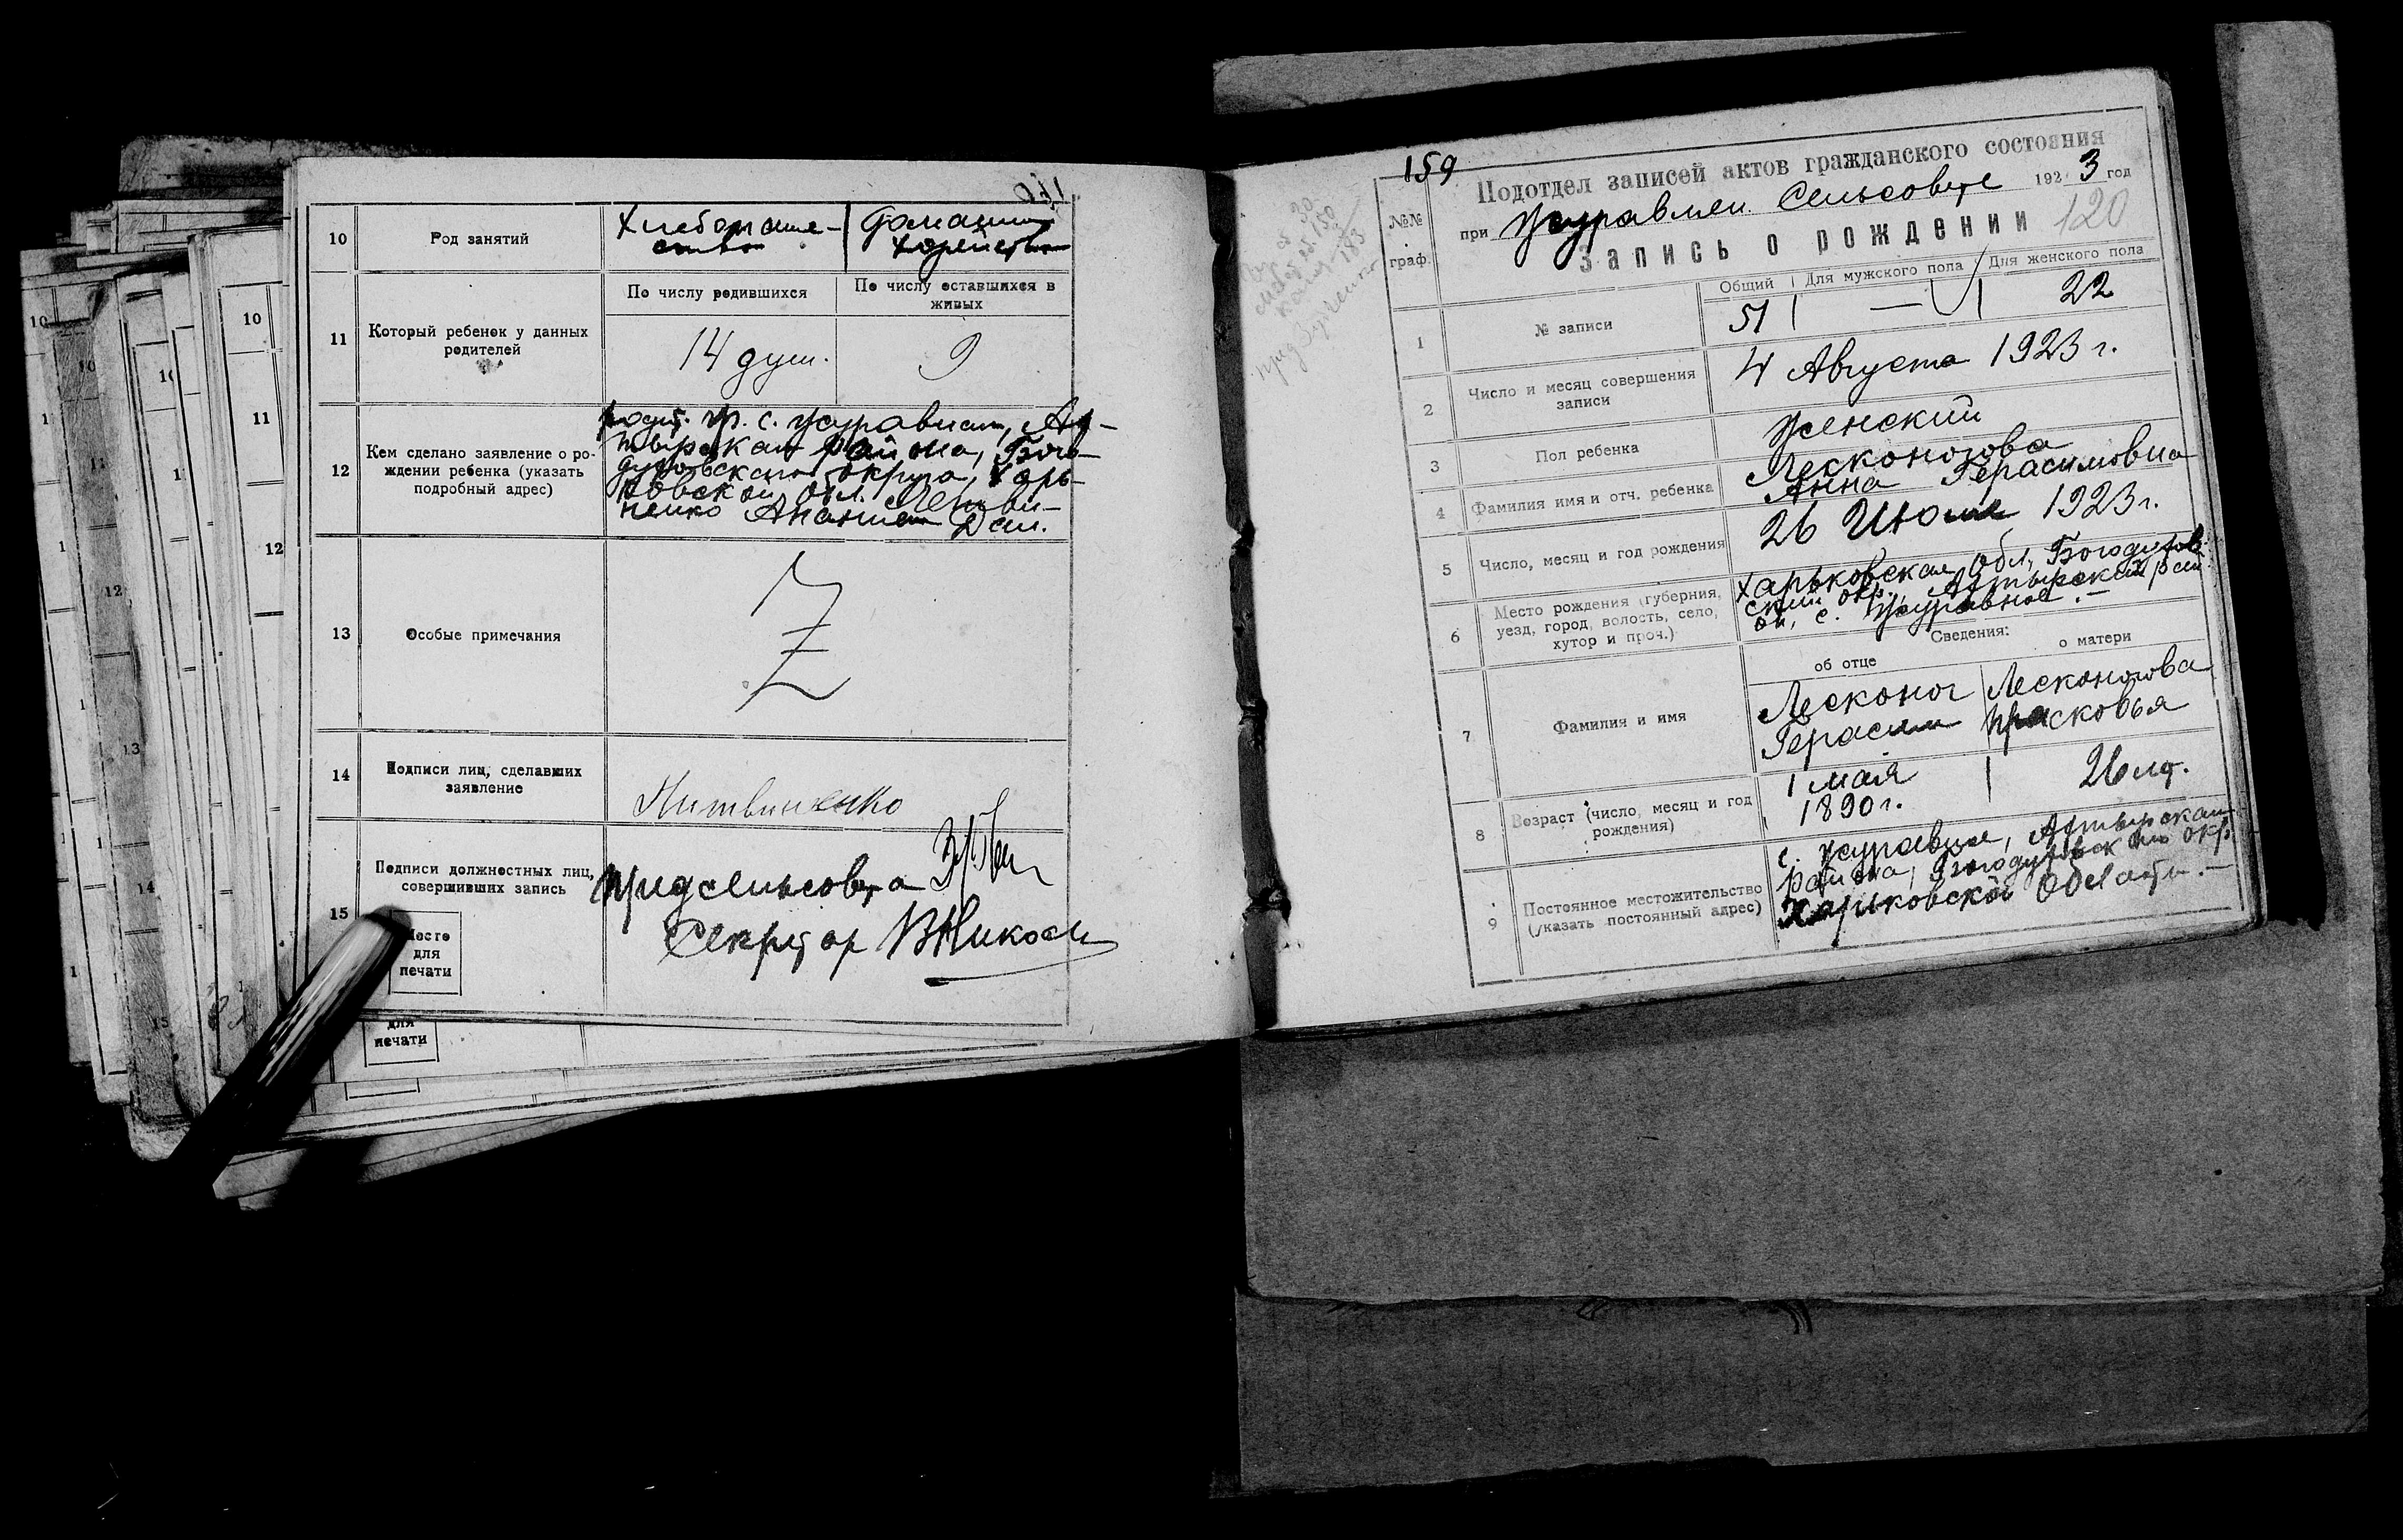 10
Род занятий
Хлебопаше-
ство
Домашнее
хозяйство
11
Который ребенок у данных
родителей
По числу родившихся
По числу оставшихся в
живых
14 душ.
9
12
Кем сделано заявление о ро-
ждении ребенка (указать
подробный адрес)
гр. с. Журавного, Ах-
тырского района, Бого-
духовского округа, Харь-
ковской обл. Литви-
ненко Ананием Дан.
13
Особые примечания
Z
14
Подписи лиц, сделавших
заявление
Литвиненко
15
Подписи должностных лиц,
совершивших запись
Место
для
печати
Предсельсовета
Секретарь
для
печати
159
Подотдел записей актов гражданского состояния
при Журавлен. Сельсовете 1923 год
Запись о рождении
120
№№
граф.
Общий
Для мужского пола
Для женского пола
1
№ записи
51
—
22
2
Число и месяц совершения
записи
4 Августа 1923 г.
3
Пол ребенка
Женский
4
Фамилия имя и отч. ребенка
Лесконогова
Анна Герасимовна
5
Число, месяц и год рождения
26 Июля 1923 г.
6
Место рождения (губерния,
уезд, город, волость, село,
хутор и проч.)
Харьковская Обл, Богодухов-
ский окр., Ахтырский рай
он, с. Журавное. —
Сведения:
об отце
о матери
7
Фамилия и имя
Лесконог
Герасим
Лесконогова
Прасковья
8
Возраст (число, месяц и год
рождения)
1 мая
1890 г.
26 лет.
9
Постоянное местожительство
(указать постоянный адрес)
с. Журавное, Ахтырского
района, Богодуховского окр
Харьковской Области. —